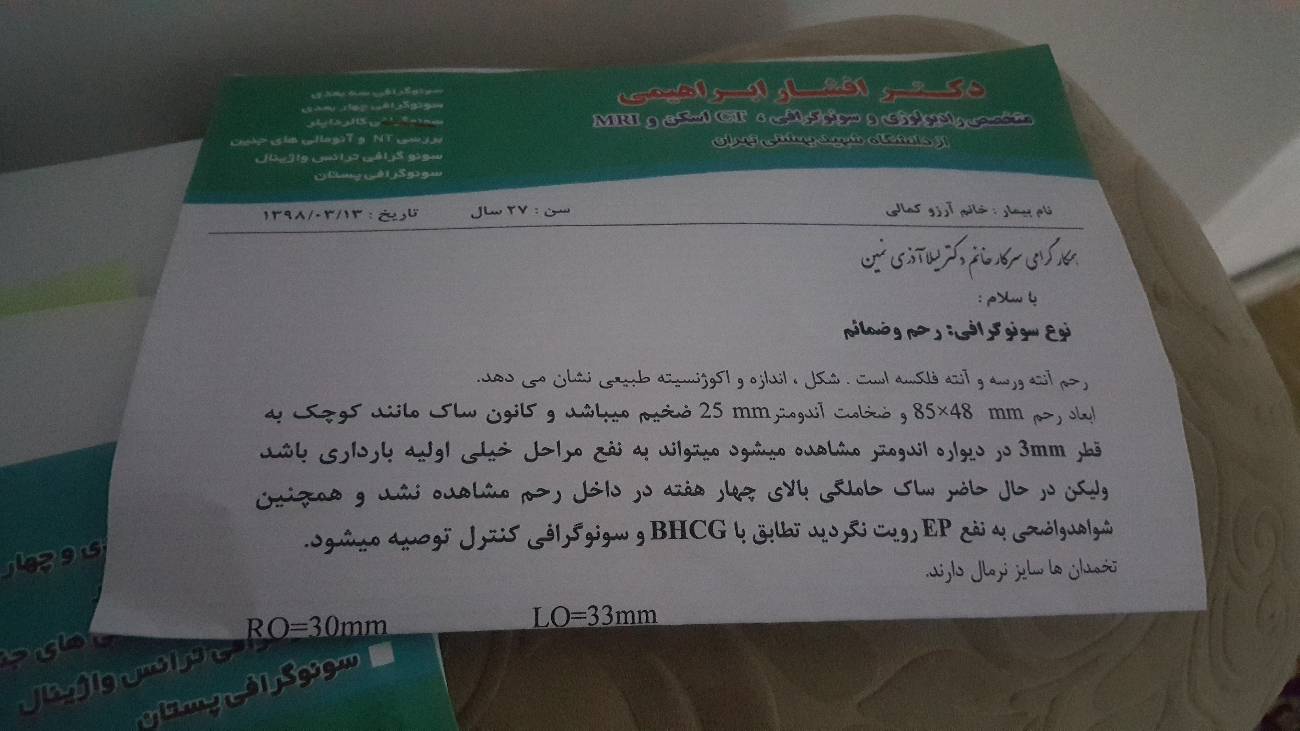 دکتر افشار ابراهیمی
متخصص رادیولوژی و سونوگرافی ، CT اسکن و MRI
از دانشگاه شهید بهشتی تهران
سونوگرافی سه بعدی
سونوگرافی چهار بعدی
کالرداپلر
بررسی NT و آنومالی های جنین
سونو گرافی ترانس واژینال
سونوگرافی پستان
نام بیمار : خانم آرزو کمالی سن : ۲۷ سال تاریخ : ۱۳۹۸/۰۳/۱۳
همکار گرامی سرکار خانم دکتر لیلا آذری
با سلام :
نوع سونوگرافی: رحم وضمائم
رحم آنته ورسه و آنته فلکسه است . شکل ، اندازه و اکوژنسیته طبیعی نشان می دهد.
ابعاد رحم 85×48 mm و ضخامت آندومتر 25 mm ضخیم میباشد و کانون ساک مانند کوچک به
قطر 3mm در دیواره اندومتر مشاهده میشود میتواند به نفع مراحل خیلی اولیه بارداری باشد
ولیکن در حال حاضر ساک حاملگی بالای چهار هفته در داخل رحم مشاهده نشد و همچنین
شواهدواضحی به نفع EP رویت نگردید تطابق با BHCG و سونوگرافی کنترل توصیه میشود.
تخمدان ها سایز نرمال دارند.
RO=30mm LO=33mm
ی و چهار
ی های جنی
گرافی ترانس واژینال
سونوگرافی پستان